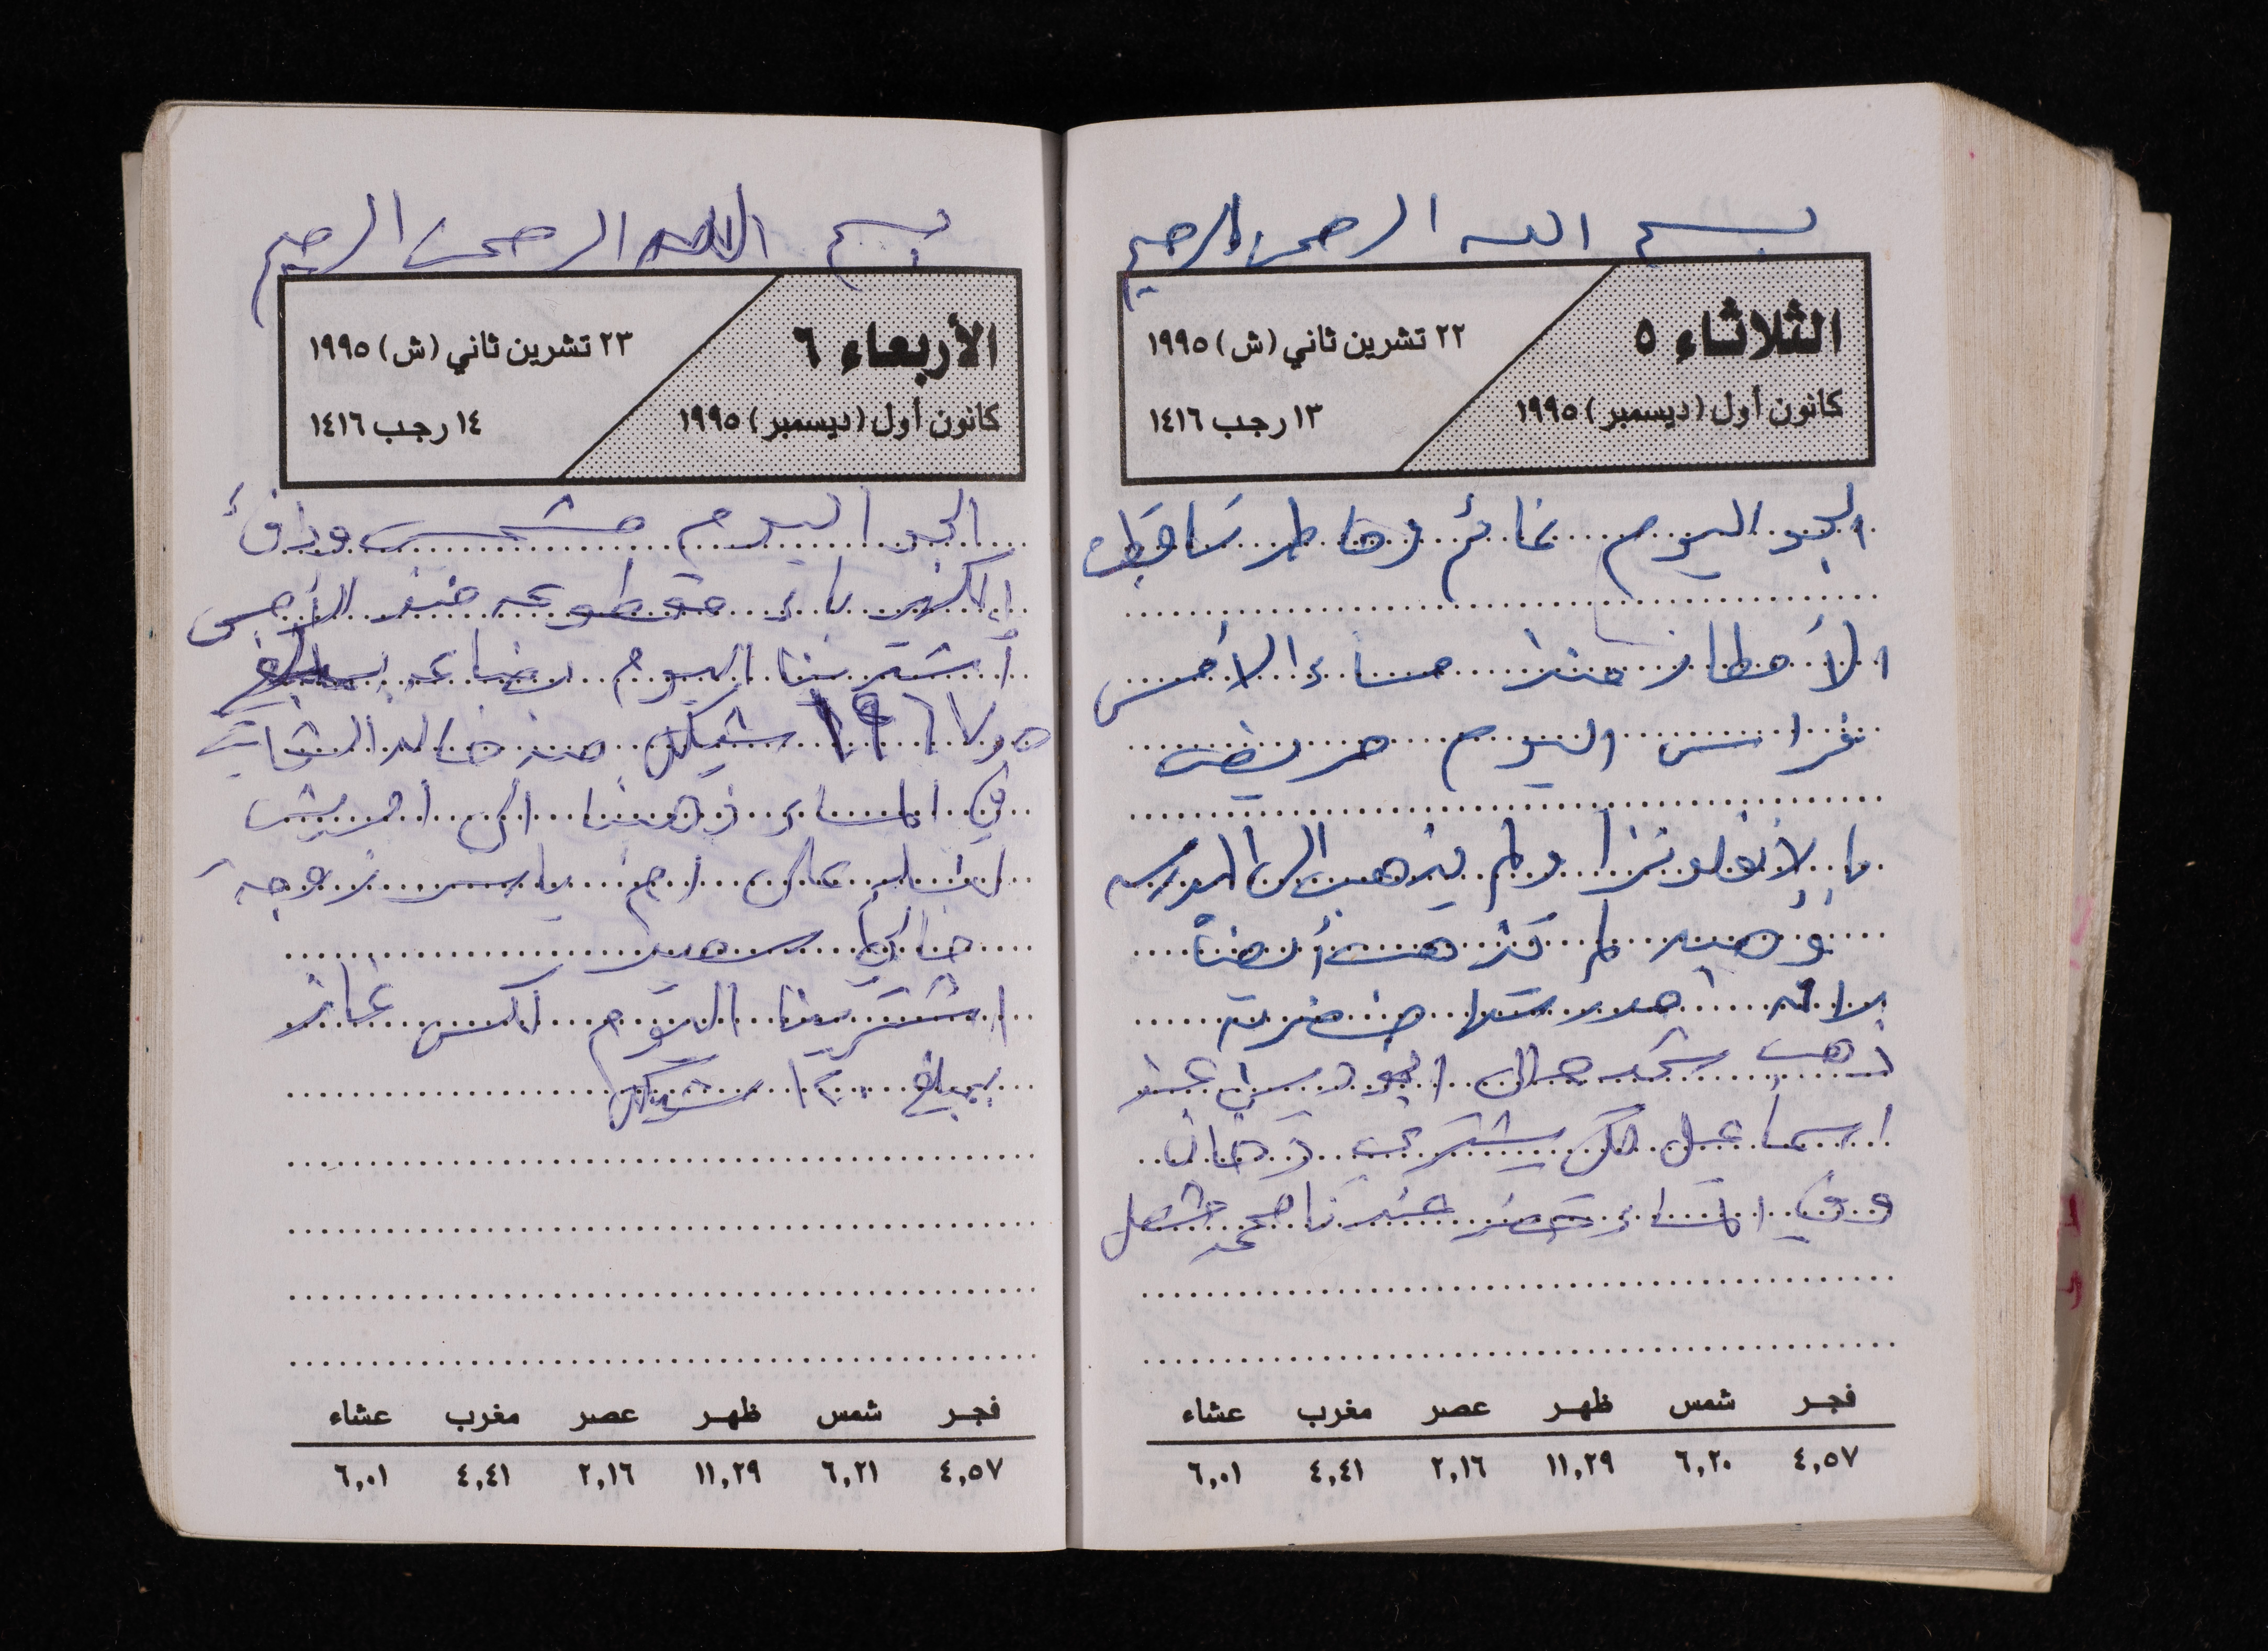 بسم الله الرحمن الرحيم
الثلاثاء ٥
٢٢ تشرين ثاني (ش) ١٩٩٥
كانون أول (ديسمبر) ١٩٩٥
١٣ رجب ١٤١٦
الجو اليوم غائم وماطر تساقطت
الأمطار منذ مساء الأمس
فراس اليوم مريض
بالإنفلونزا ولم يذهب الى المدرسه
لم تذهب أيضاً
مدرستها مضربة
ذهب
اسماعيل لكي يشتري دخان
وفي المساء حضر عندنا محمد مشعل
فجر شمس ظهر عصر مغرب عشاء
٤,٥٧ ٦,٢٠ ١١,٢٩ ٢,١٦ ٤,٤١ ٦,٠١
بسم الله الرحمن الرحيم
الأربعاء ٦
٢٣ تشرين ثاني (ش) ١٩٩٥
كانون أول (ديسمبر) ١٩٩٥
١٤ رجب ١٤١٦
الجو اليوم مشمس ودافئ
الكهرباء مقطوعه منذ الأمس
أشترينا اليوم بضاعه بمبلغ
شيكل من خالد
في المساء ذهبنا الى
على ام ياسر زوجة
خالي سعيد
اشترينا اليوم لكس غاز
بمبلغ ١٢٠ شيكل
فجر شمس ظهر عصر مغرب عشاء
٤,٥٧ ٦,٢١ ١١,٢٩ ٢,١٦ ٤,٤١ ٦,٠١